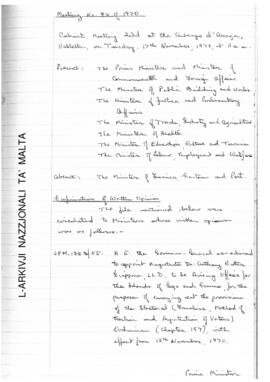 L-ARKIVJI NAZZJONALI TA' MALTA
Meeting No. 86 of 1970
Cabinet Meeting held at the Auberge d'Aragon,
Valletta, on Tuesday, 17th November, 1970, at 11 a.m.
Present: The Prime Minister and Minister of
Commonwealth and Foreign Affairs
The Minister of Public Building and Works
The Minister of Justice and Parliamentary
Affairs.
The Minister of Trade, Industry and Agriculture
The Minister of Health
The Minister of Education, Culture and Tourism
The Minister of Labour, Employment and Welfare
Absent: The Minister of Finance, Customs and Port.
Confirmation of Written Opinion
The file mentioned below was
circulated to Ministers whose written opinion
was as follows:-
H.E. the Governor-General be advised
to appoint Magistrate Dr. Anthony
LL.D. to be Revising Officer for
the Islands of Gozo and Comino, for the
purpose of carrying out the provisions
of the Electoral (Franchise, Method of
Election and Registration of Voters)
Ordinance (Chapter 157), with
effect from November, 1970.
Prime Minister